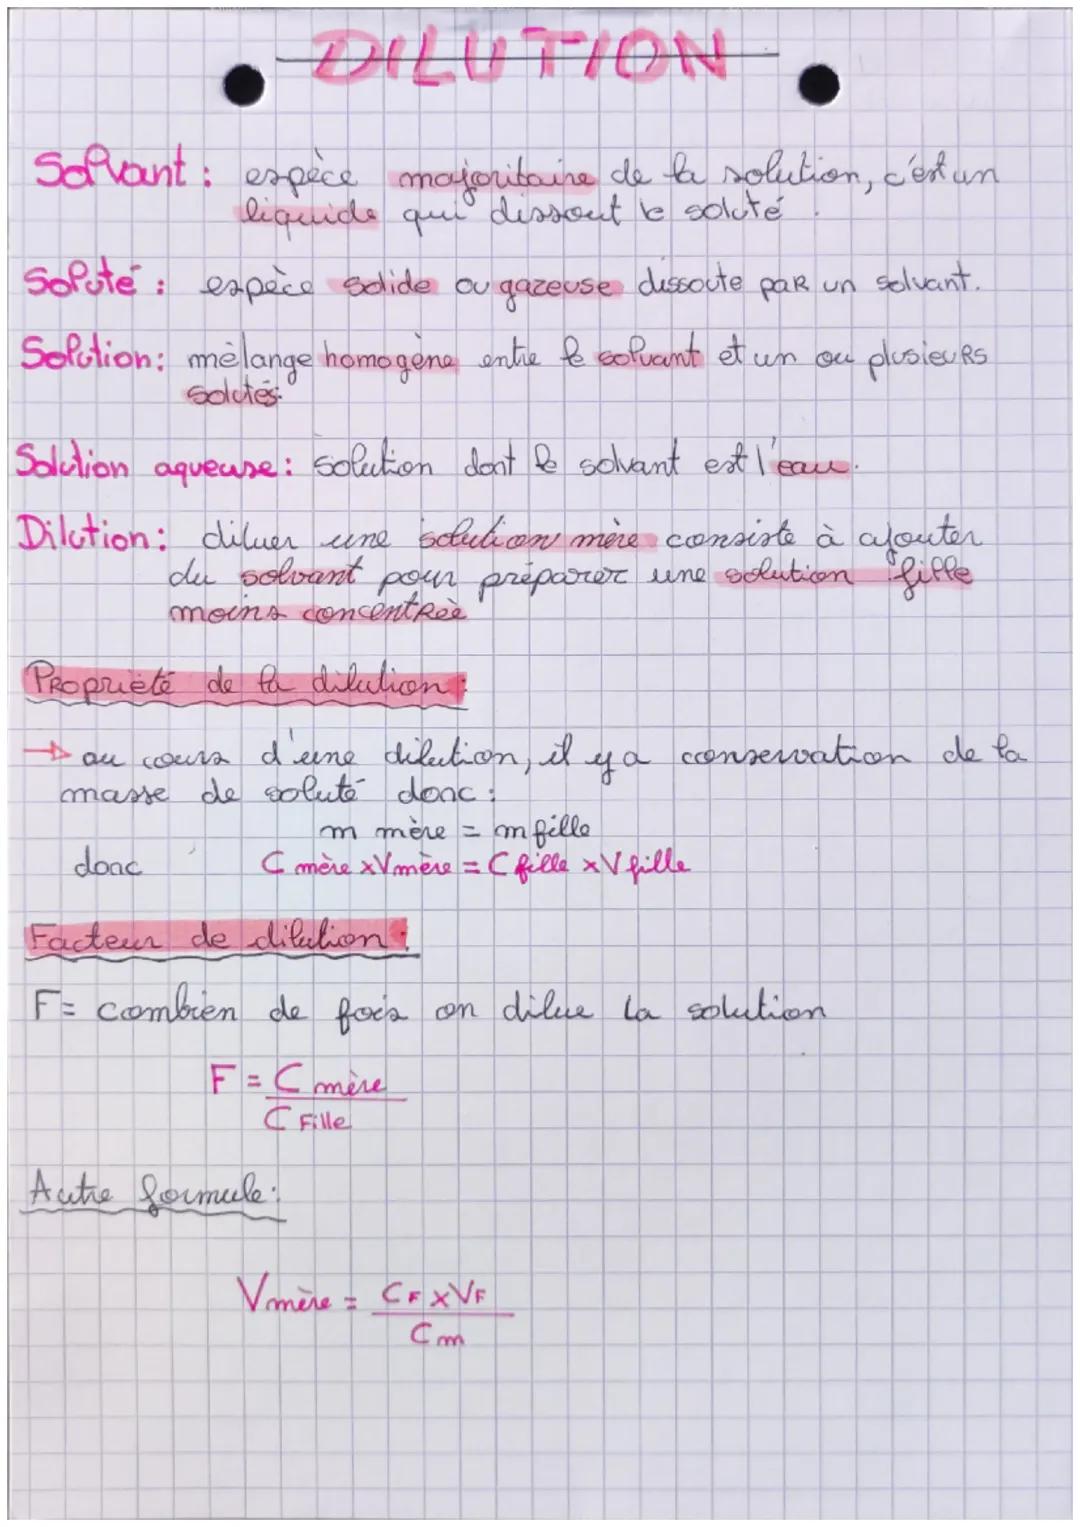 DILUTION
Solvant : espèce majoritaire de la solution, c'est un
liquide qui dissout le soluté.
Soluté : espèce solide ou gazeuse dissoute par un solvant.
Solution : mélange homogène entre le solvant et un ou plusieurs
solutés.
Solution aqueuse : solution dont le solvant est l'eau.
Dilution : diluer une solution mère consiste à ajouter
du solvant pour préparer une solution fille
moins concentrée
Propriété de la dilution :
→ au cours d'une dilution, il y a conservation de la
masse de soluté donc :
m mère = m fille
donc C mère x V mère = C fille x V fille
Facteur de dilution :
F = combien de fois on dilue la solution
F = C mère
C Fille
Autre formule :
V mère = CF x VF
Cm